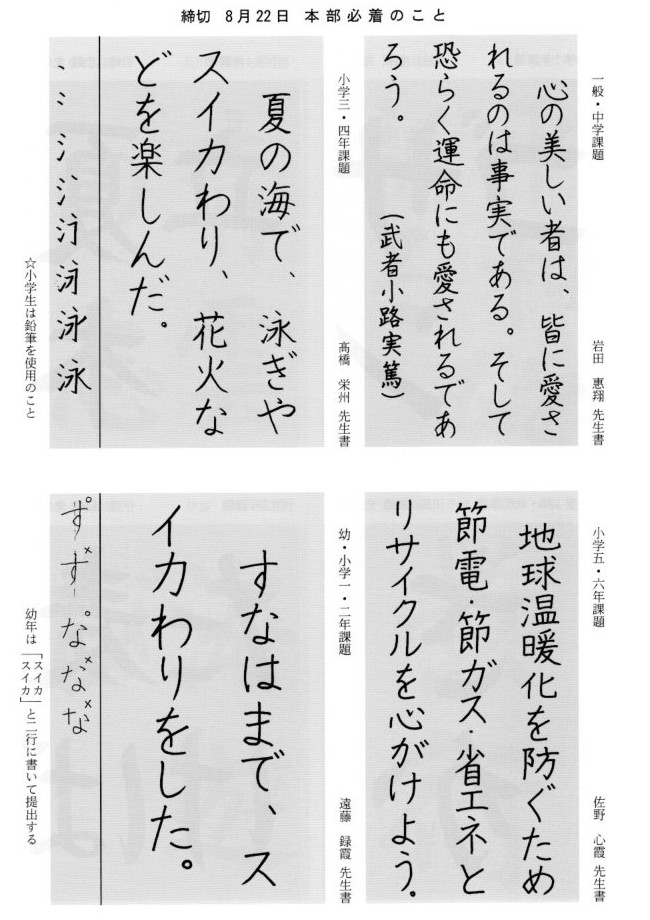 締切 8月22日 本部必着のこと
一般・中学課題
岩田 惠翔 先生書
心の美しい者は、皆に愛さ
れるのは事実である。そして
恐らく運命にも愛されるであ
ろう。
(武者小路実篤)
小学三・四年課題
高橋 栄州 先生書
夏の海で、泳ぎや
スイカわり、花火な
どを楽しんだ。
泳 泳 泳
☆小学生は鉛筆を使用のこと
小学五・六年課題
佐野 心霞 先生書
地球温暖化を防ぐため
節電・節ガス・省エネと
リサイクルを心がけよう。
幼・小学一・二年課題
遠藤 録霞 先生書
すなはまで、ス
イカわりをした。
す す な な な
幼年は「スイカ
スイカ」と二行に書いて提出する